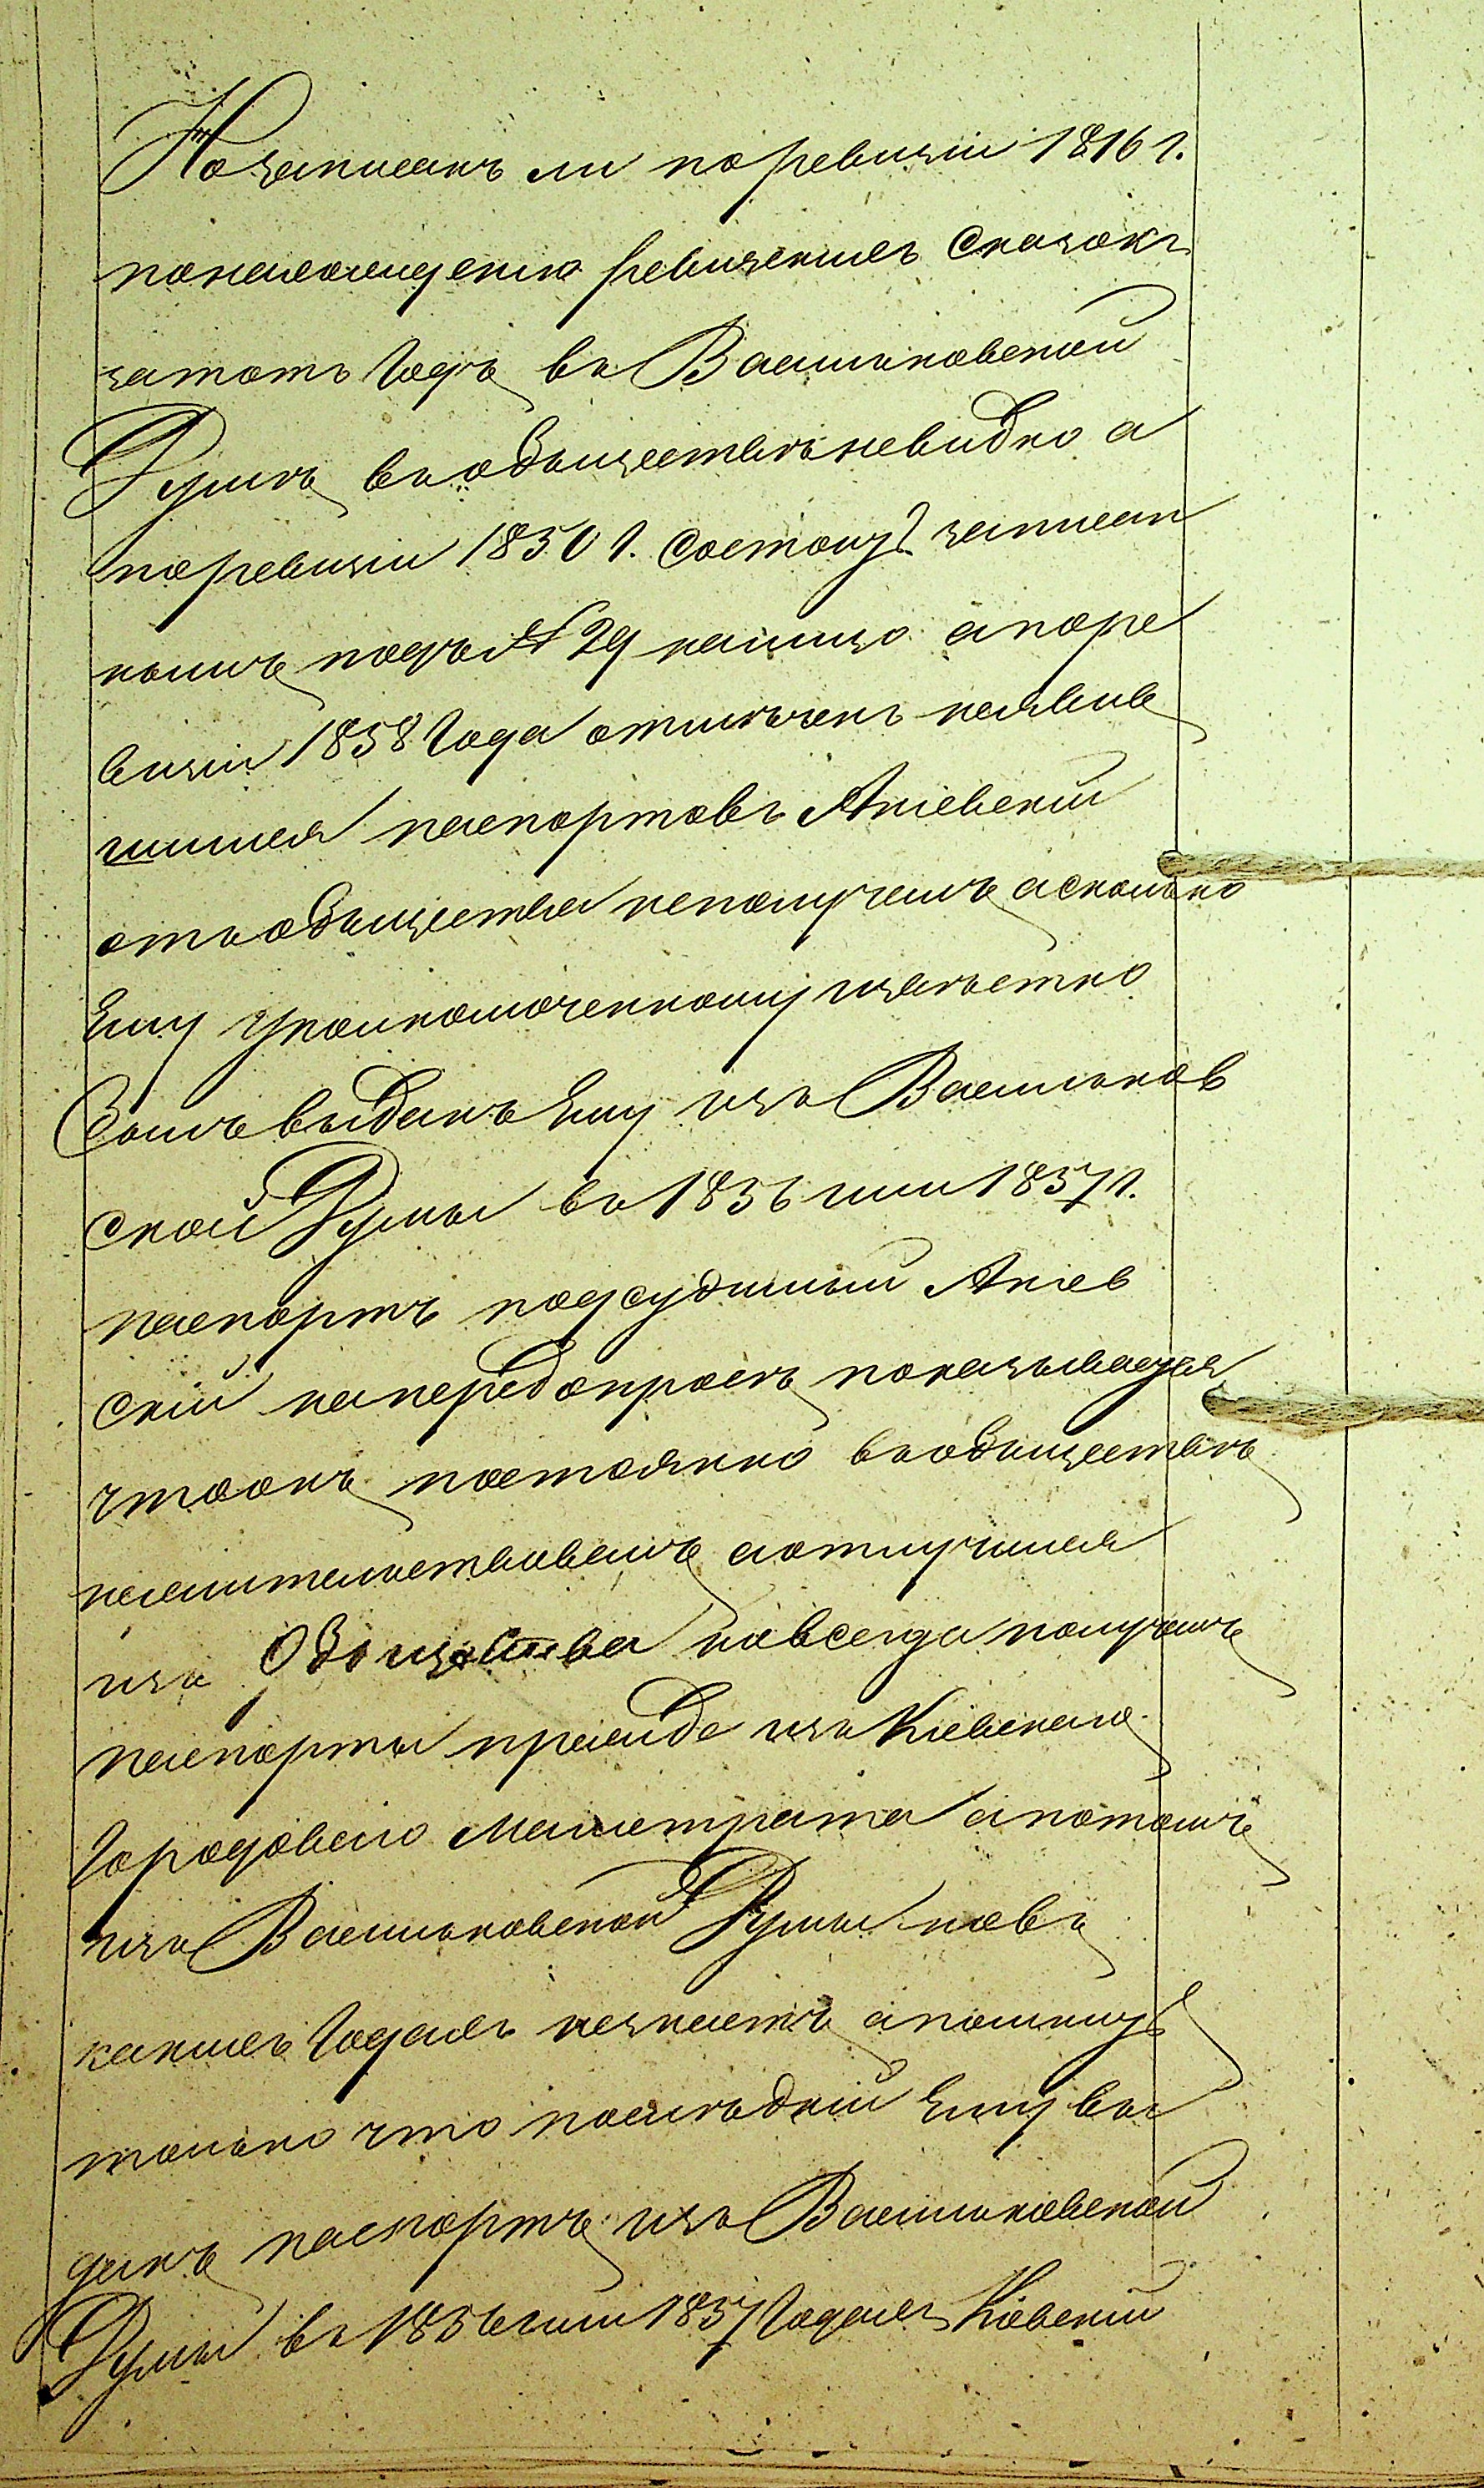 Но записанъ ли по ревизіи 1816 г.
понеимѣнію ревизскихъ сказокъ
за тотъ годъ въ Васильковской
Думѣ въ обьществѣ невидно а
по ревизіи 1850 г. состоитъ записан
нымъ подъ № 29 налицо а по ре
визіи 1858 года отмѣченъ неявив
шимся паспортовъ Якіевскій
отъ обьщества неполучалъ а сколько
ему уполномоченному извѣстно
былъ выданъ ему изъ Васильков
ской Думы въ 1856 или 1857 г.
паспортъ подсудимый Якіев
скій на передопросѣ показывается
что онъ постоянно въ обьществѣ
нежительствовалъ а отлучился
изъ Обьщества навсегда получалъ
паспорты прежде изъ Кіевскаго
Городоваго Магистрата а потомъ
изъ Васильковской Думы но въ
какихъ годахъ незнаетъ а помнитъ
только что послѣдній ему вы
данъ паспортъ изъ Васильковской
Думы въ 1856 или 1857 годахъ Кіевскій